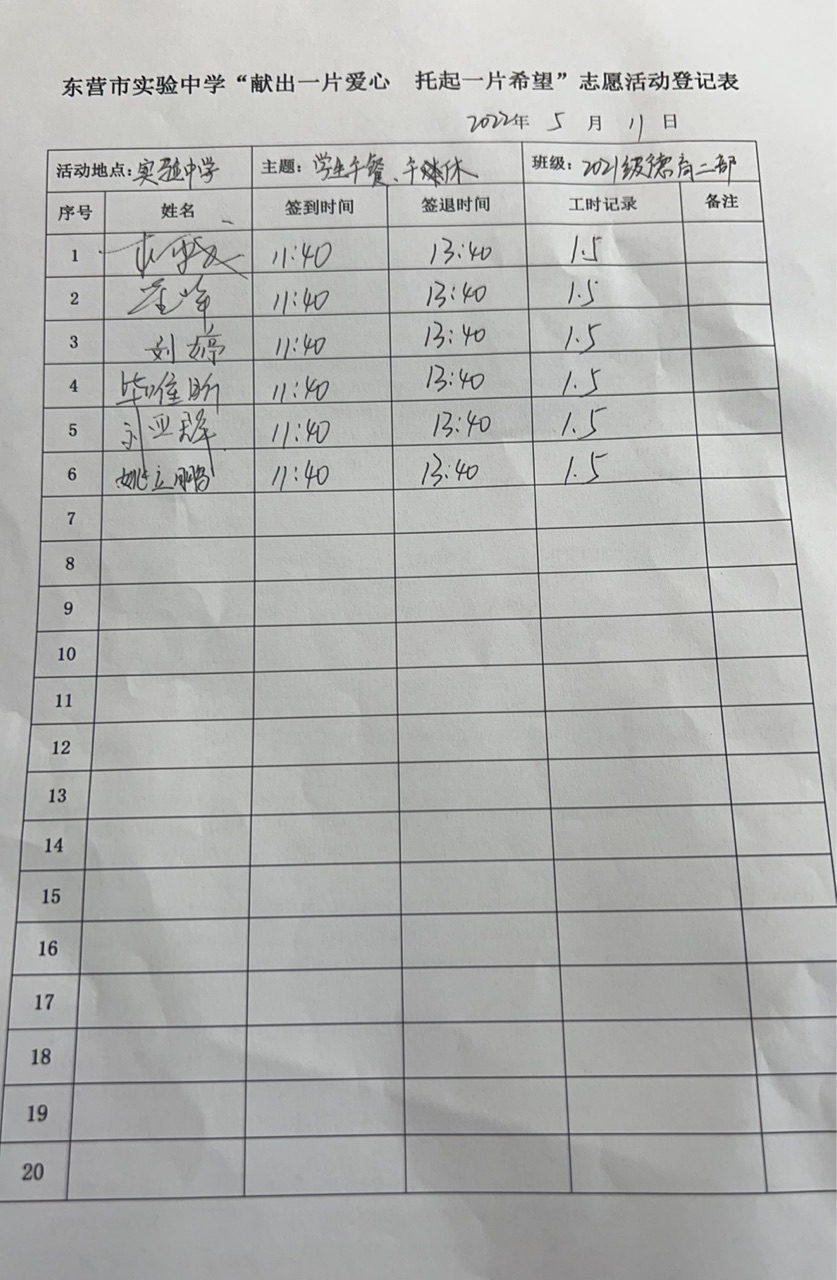 东营市实验中学“献出一片爱心 托起一片希望”志愿活动登记表
2022年 5 月 11 日
活动地点:实验中学 主题:学生午餐、午休 班级:2021级德育二部
序号 姓名 签到时间 签退时间 工时记录 备注
1 11:40 13:40 1.5
2 11:40 13:40 1.5
3 刘婷 11:40 13:40 1.5
4 11:40 13:40 1.5
5 刘亚辉 11:40 13:40 1.5
6 姚立鹏 11:40 13:40 1.5
7
8
9
10
11
12
13
14
15
16
17
18
19
20